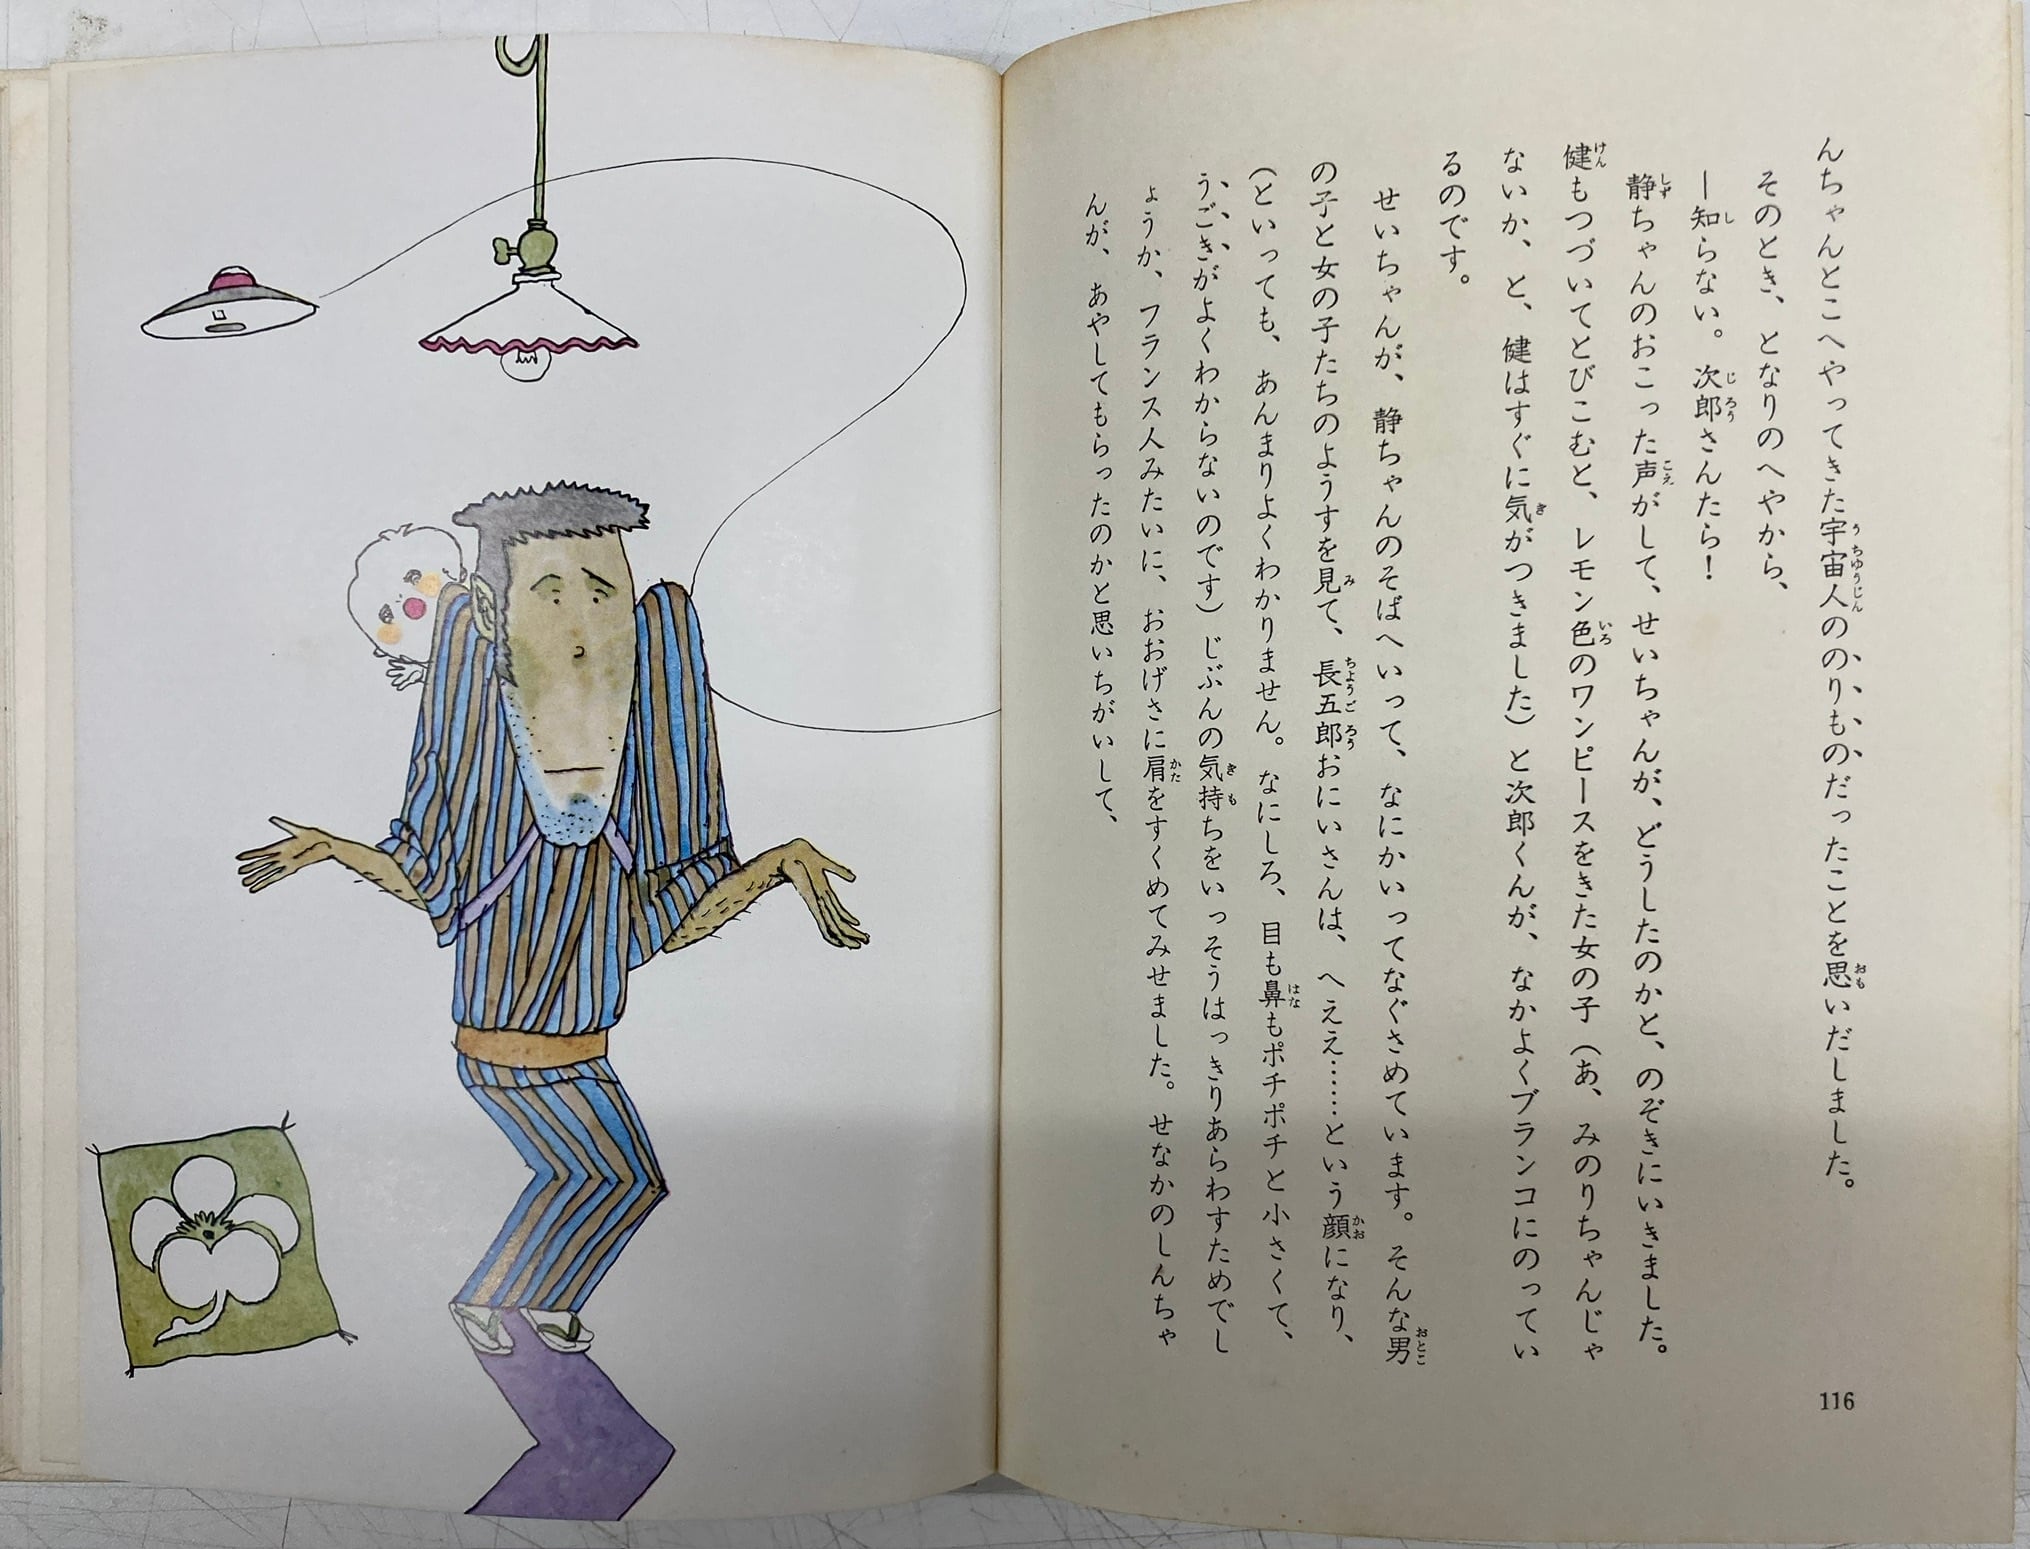 んちゃんとこへやってきた宇宙人ののりものだったことを思いだしました。
そのとき、となりのへやから、
―知らない。次郎さんたら!
静ちゃんのおこった声がして、せいちゃんが、どうしたのかと、のぞきにいきました。
健もつづいてとびこむと、レモン色のワンピースをきた女の子(あ、みのりちゃんじゃ
ないか、と、健はすぐに気がつきました)と次郎くんが、なかよくブランコにのってい
るのです。
せいちゃんが、静ちゃんのそばへいって、なにかいってなぐさめています。そんな男
の子と女の子たちのようすを見て、長五郎おにいさんは、へええ……という顔になり、
(といっても、あんまりよくわかりません。なにしろ、目も鼻もポチポチと小さくて、
うごきがよくわからないのです)じぶんの気持ちをいっそうはっきりあらわすためでし
ょうか、フランス人みたいに、おおげさに肩をすくめてみせました。せなかのしんちゃ
んが、あやしてもらったのかと思いちがいして、
116